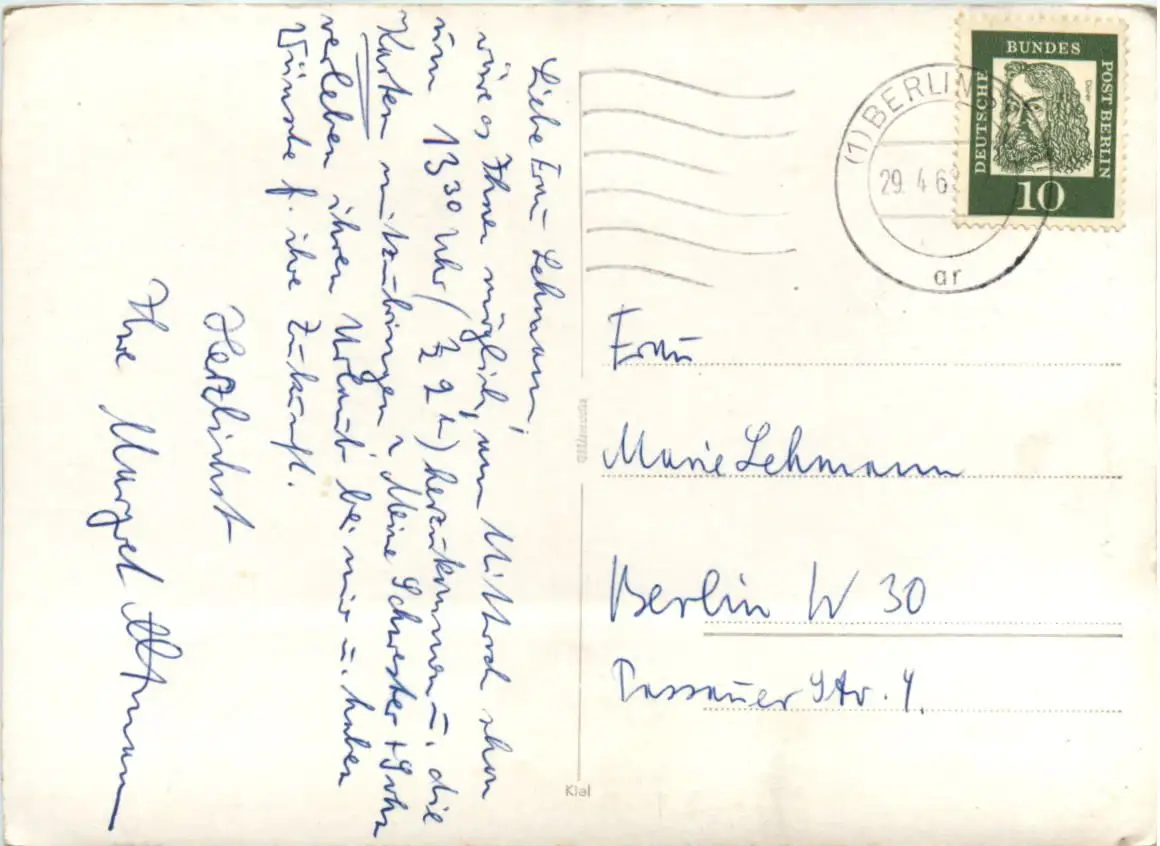 Liebe Frau Lehmann,
wäre es Ihnen möglich, am Mittwoch schon
um 13 30 Uhr (½ 2 h) herzukommen u. die
Karten mitzubringen? Meine Schwester + Sohn
verleben ihren Urlaub bei mir u. haben
Wünsche f. ihre Zukunft.
Herzlichst
Ihre Margret Altmann
(1) BERLIN
29. 4. 6
ar
BUNDES
DEUTSCHE
POST BERLIN
Dürer
10
Frau
Marie Lehmann
Berlin W 30
Passauer Str. 4.
Kiel